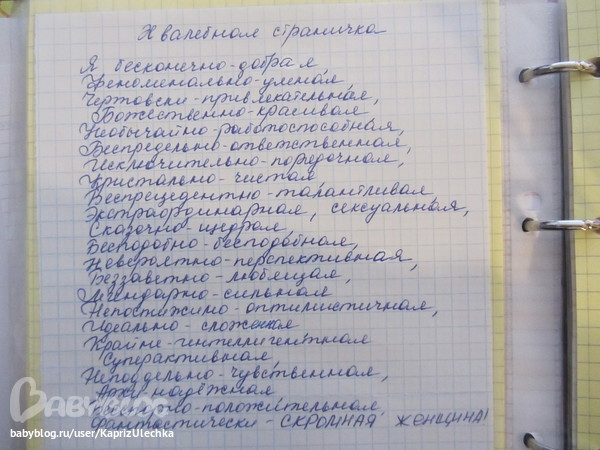 Хвалебная страничка
Я бесконечно-добрая,
Феноменально-умная,
Чертовски-привлекательная,
Божественно-красивая
Необычайно-работоспособная,
Беспредельно-ответственная,
Исключительно-порядочная,
Кристально-чистая,
Беспрецедентно-талантливая
Экстраординарная, сексуальная,
Сказочно-щедрая,
Бесподобно-бесподобная,
Невероятно-перспективная,
Беззаветно-любящая,
Легендарно-сильная
Непостижимо-оптимистичная,
Идеально-сложеная
Крайне-интеллигентная
Суперактивная,
Неподдельно-чувственная,
Архи надёжная
-положительная,
Фантастически-СКРОМНАЯ ЖЕНЩИНА!
BABYBLOG
babyblog.ru/user/KaprizUlechka